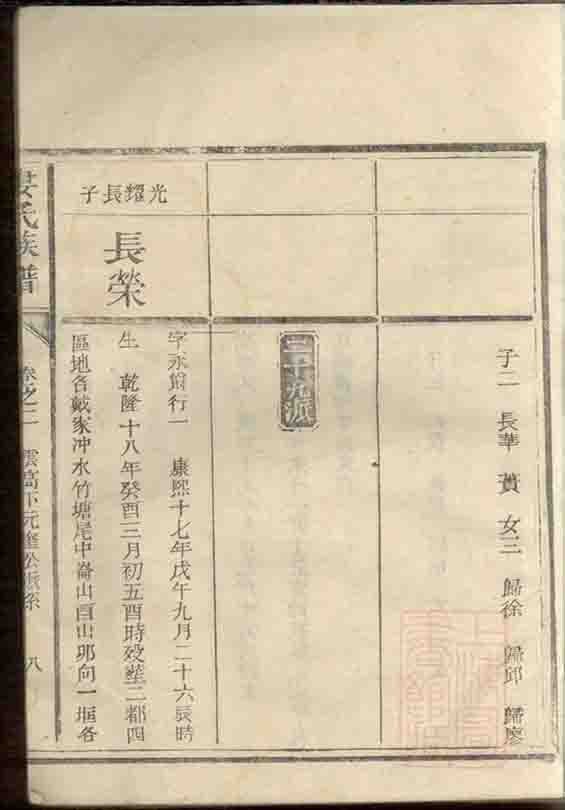 子二 長華 蕡 女三 歸徐 歸邱 歸廖
三十九派
光耀長子
長榮
字永爵行一 康熙十七年戊午九月二十六辰時
生 乾隆十八年癸酉三月初五酉時歿塟二都四
區地名戴家冲水竹塘尾中崙山酉山卯向一堀各
氏族譜
卷之二 雲高下元隆公派系 八